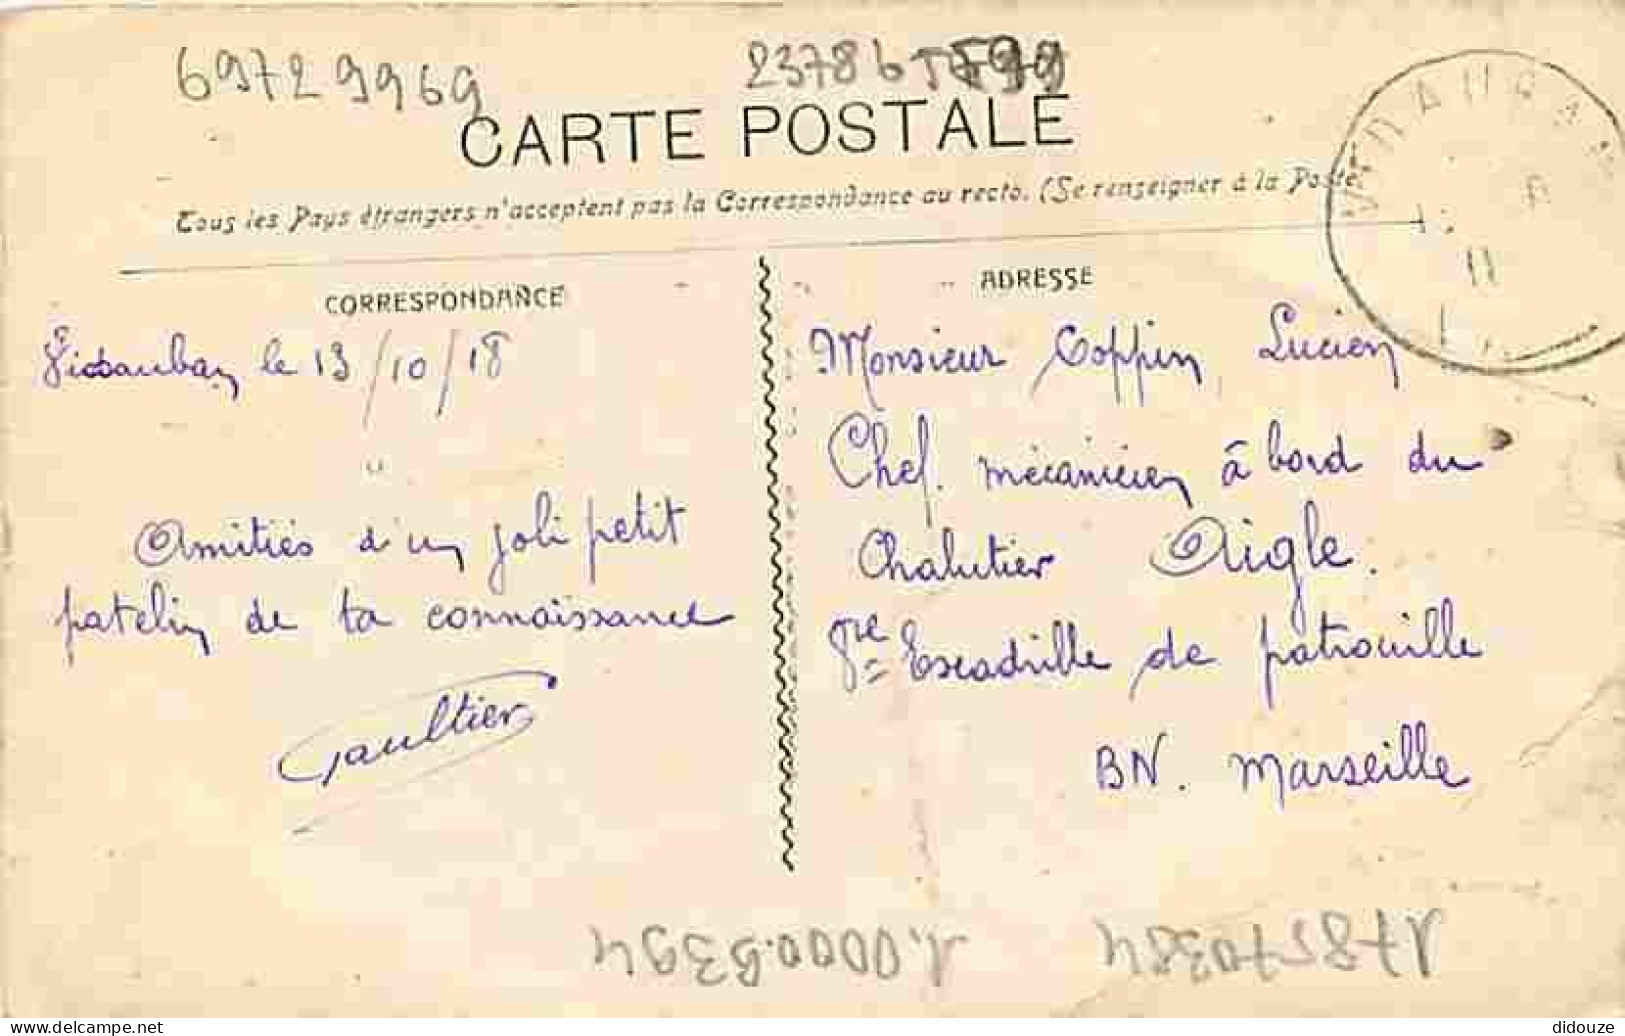 69729969
CARTE POSTALE
Tous les Pays étrangers n'acceptent pas la Correspondance au recto. (Se renseigner à la Poste)
CORRESPONDANCE
ADRESSE
Vidauban le 13/10/18
Amitiés d'un joli petit
patelin de ta connaissance
Gaultier
Monsieur Coppin Lucien
Chef. mécanicien à bord du
Chalutier Aigle.
8me Escadrille de patrouille
BN. Marseille
178570384
didouze
delcampe.net